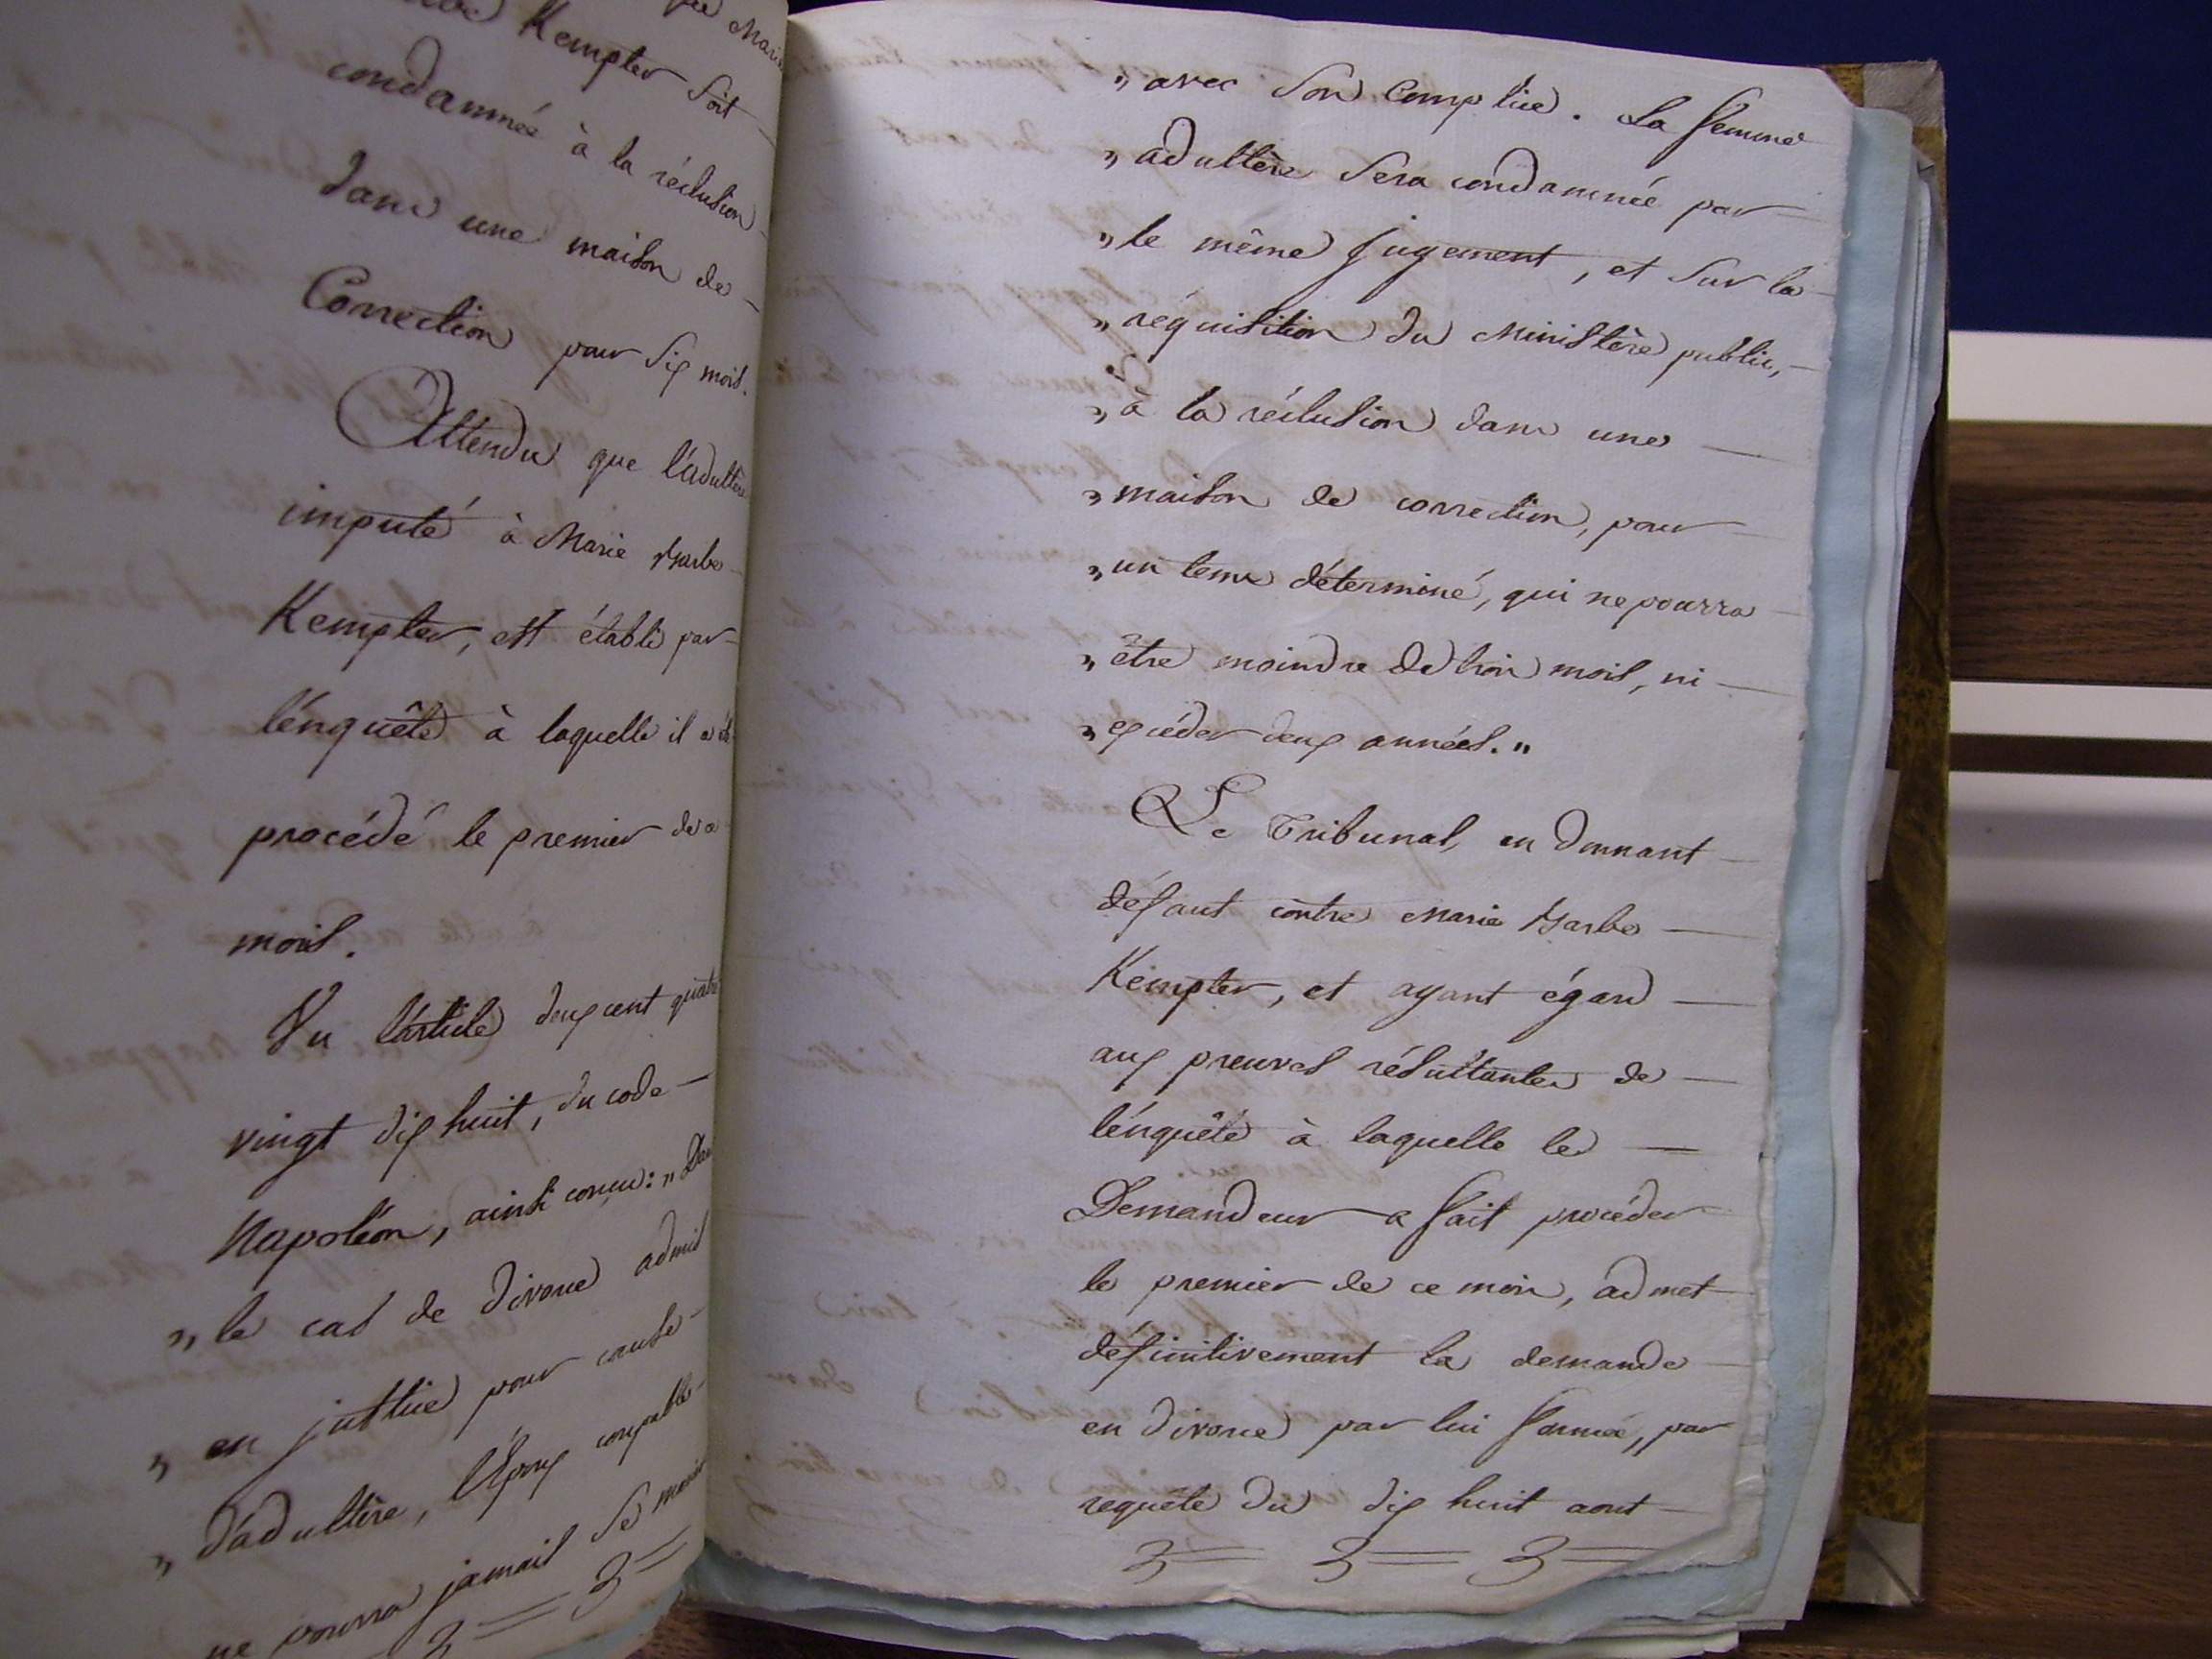 que Marie
Kempter soit
condamnée à la réclusion
dans une maison de
Correction pour six mois.
Attendu que l'adultère
imputé à Marie Barbe
Kempter, est établi par
l'énquête à laquelle il a été
procédé le premier de ce
mois.
Vu l'article deux cent quatre
vingt dix huit, du code
Napoléon, ainsi conçu: „Dans
„le cas de divorce admis
„en justice pour cause
„d'adultère, l'époux coupable
ne pourra jamais se marier
„avec son complice. La femme
„adultère sera condamnée par
„le même jugement, et sur la
„réquisition du Ministère public,
„à la réclusion dans une
„maison de correction, pour
„un tems déterminé, qui ne pourra
„être moindre de trois mois, ni
„excéder deux années."
Le Tribunal, en donnant
défaut contre Marie Barbe
Kempter, et ayant égard
aux preuves résultantes de
l'énquête à laquelle le
Demandeur a fait procéder
le premier de ce mois, admet
définitivement la demande
en divorce par lui formée, par
requête du dix huit aout